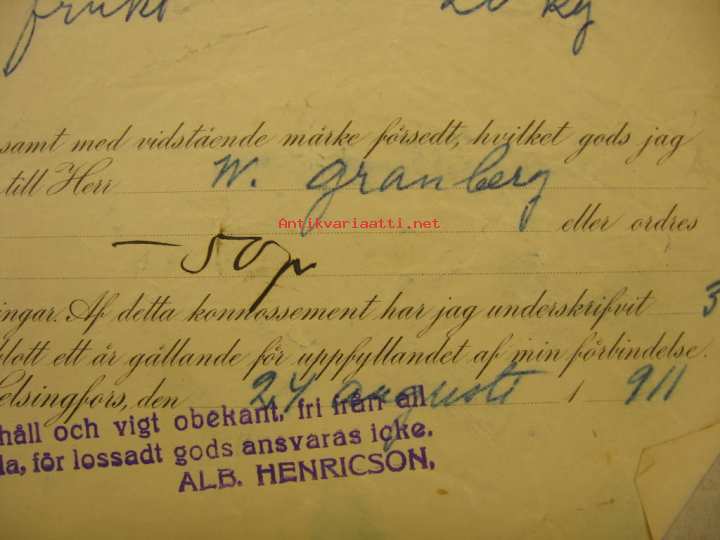 frukt 20 kg
samt med vidstående märke försedt, hvilket gods jag
till Herr W. Granberg
Antikvariaatti.net
eller ordres
—50p
ingar. Af detta konnossement har jag underskrifvit 3
blott ett är gällande för uppfyllandet af min förbindelse.
elsingfors, den 24 augusti 1911
håll och vigt obekant, fri från all
la, för lossadt gods ansvaras icke.
ALB. HENRICSON,